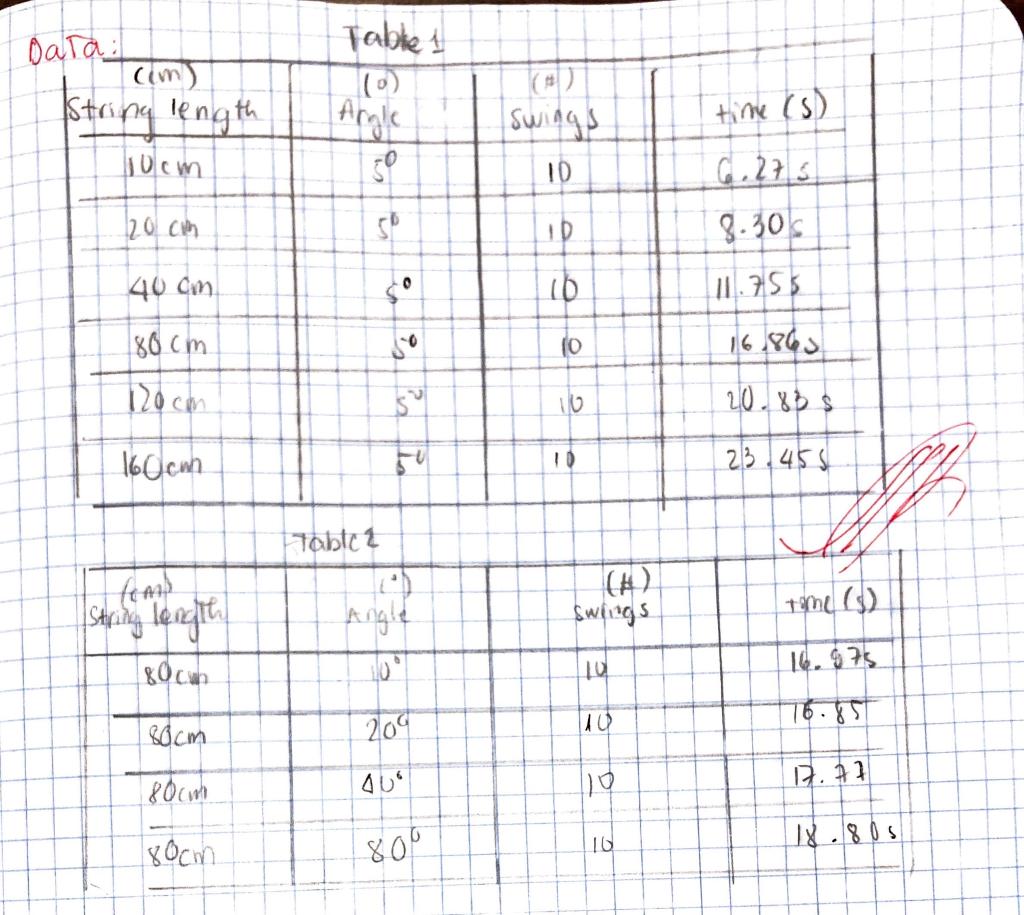 Data:
Table 1
(cm) (°) (#)
String length Angle swings time (s)
10cm 5° 10 6.27 s
20 cm 5° 10 8.30s
40 cm 5° 10 11.75s
80 cm 5° 10 16.86s
120 cm 5° 10 20.83 s
160cm 5° 10 23.45s
Table 2
(cm) (°) (#)
String length Angle swings time (s)
80cm 10° 10
80cm 20° 10 16.85
80cm 40° 10 17.77
80cm 80° 10 18.80s